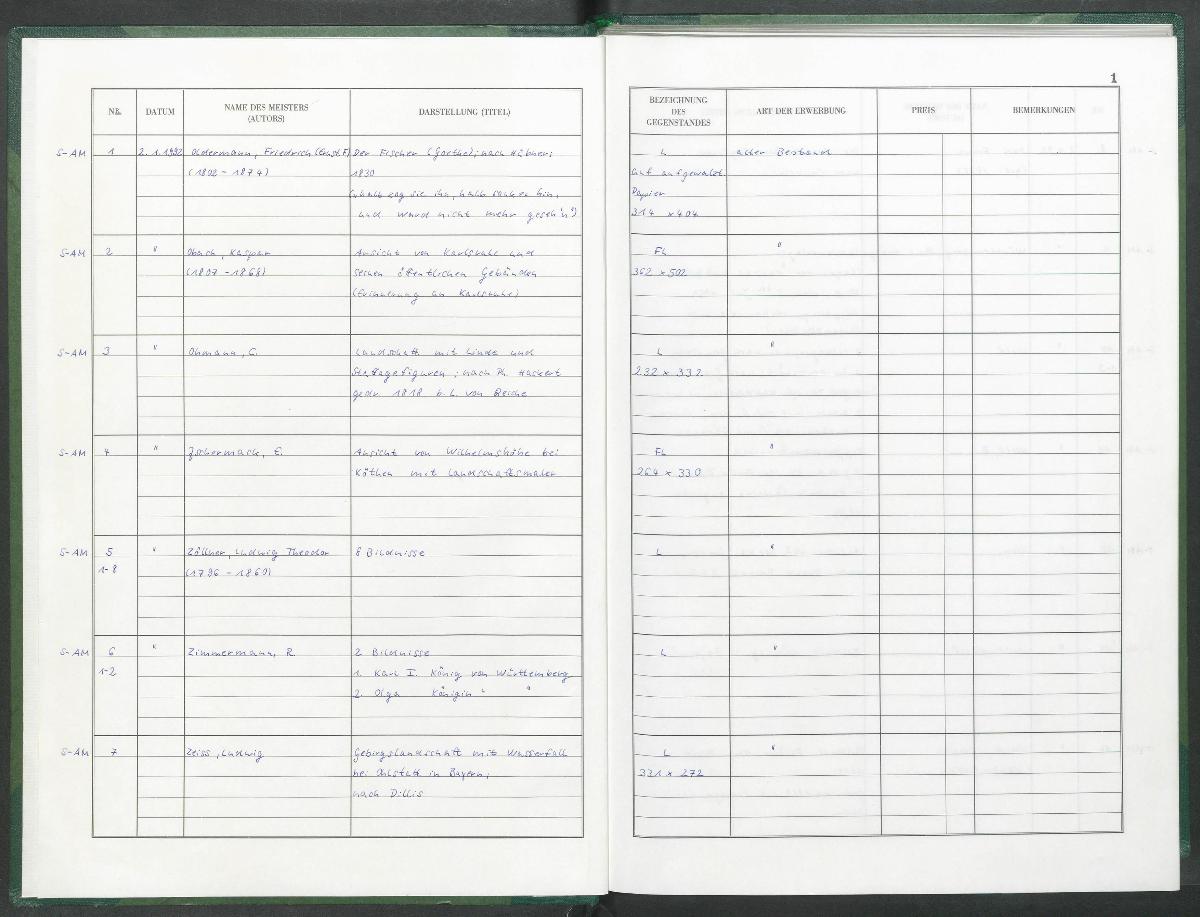 1
NR.
DATUM
NAME DES MEISTERS
(AUTORS)
DARSTELLUNG (TITEL)
BEZEICHNUNG
DES
GEGENSTANDES
ART DER ERWERBUNG
PREIS
BEMERKUNGEN
S-AM 1 2.1.1992 Oldermann, Friedrich (Ernst F) Der Fischer (Goethe); nach Hübner; L alter Bestand
(1802-1874) 1830 auf aufgewalzt.
(„halb zog sie ihn, halb sank er hin, Papier
und ward nicht mehr geseh'n") 314 x 404
S-AM 2 " Obach, Kaspar Ansicht von Karlsruhe und FL "
(1807-1868) seinen öffentlichen Gebäuden 362 x 502
(Erinnerung an Karlsruhe)
S-AM 3 " Ohmann, C. Landschaft mit Linde und L "
Staffagefiguren; nach Ph. Hackert 232 x 332
gedr. 1818 b. L. von Reiche
S-AM 4 " Zschermack, E. Ansicht von Wilhelmshöhe bei FL "
Köthen mit Landschaftsmaler 264 x 330
S-AM 5 " Zöllner, Ludwig Theodor 8 Bildnisse L "
1-8 (1796-1860)
S-AM 6 " Zimmermann, R. 2 Bildnisse L "
1-2 1. Karl I. König von Württemberg
2. Olga Königin " "
S-AM 7 " Zeiss, Ludwig Gebirgslandschaft mit Wasserfall L "
bei Ohlstatt in Bayern; 331 x 272
nach Dillis